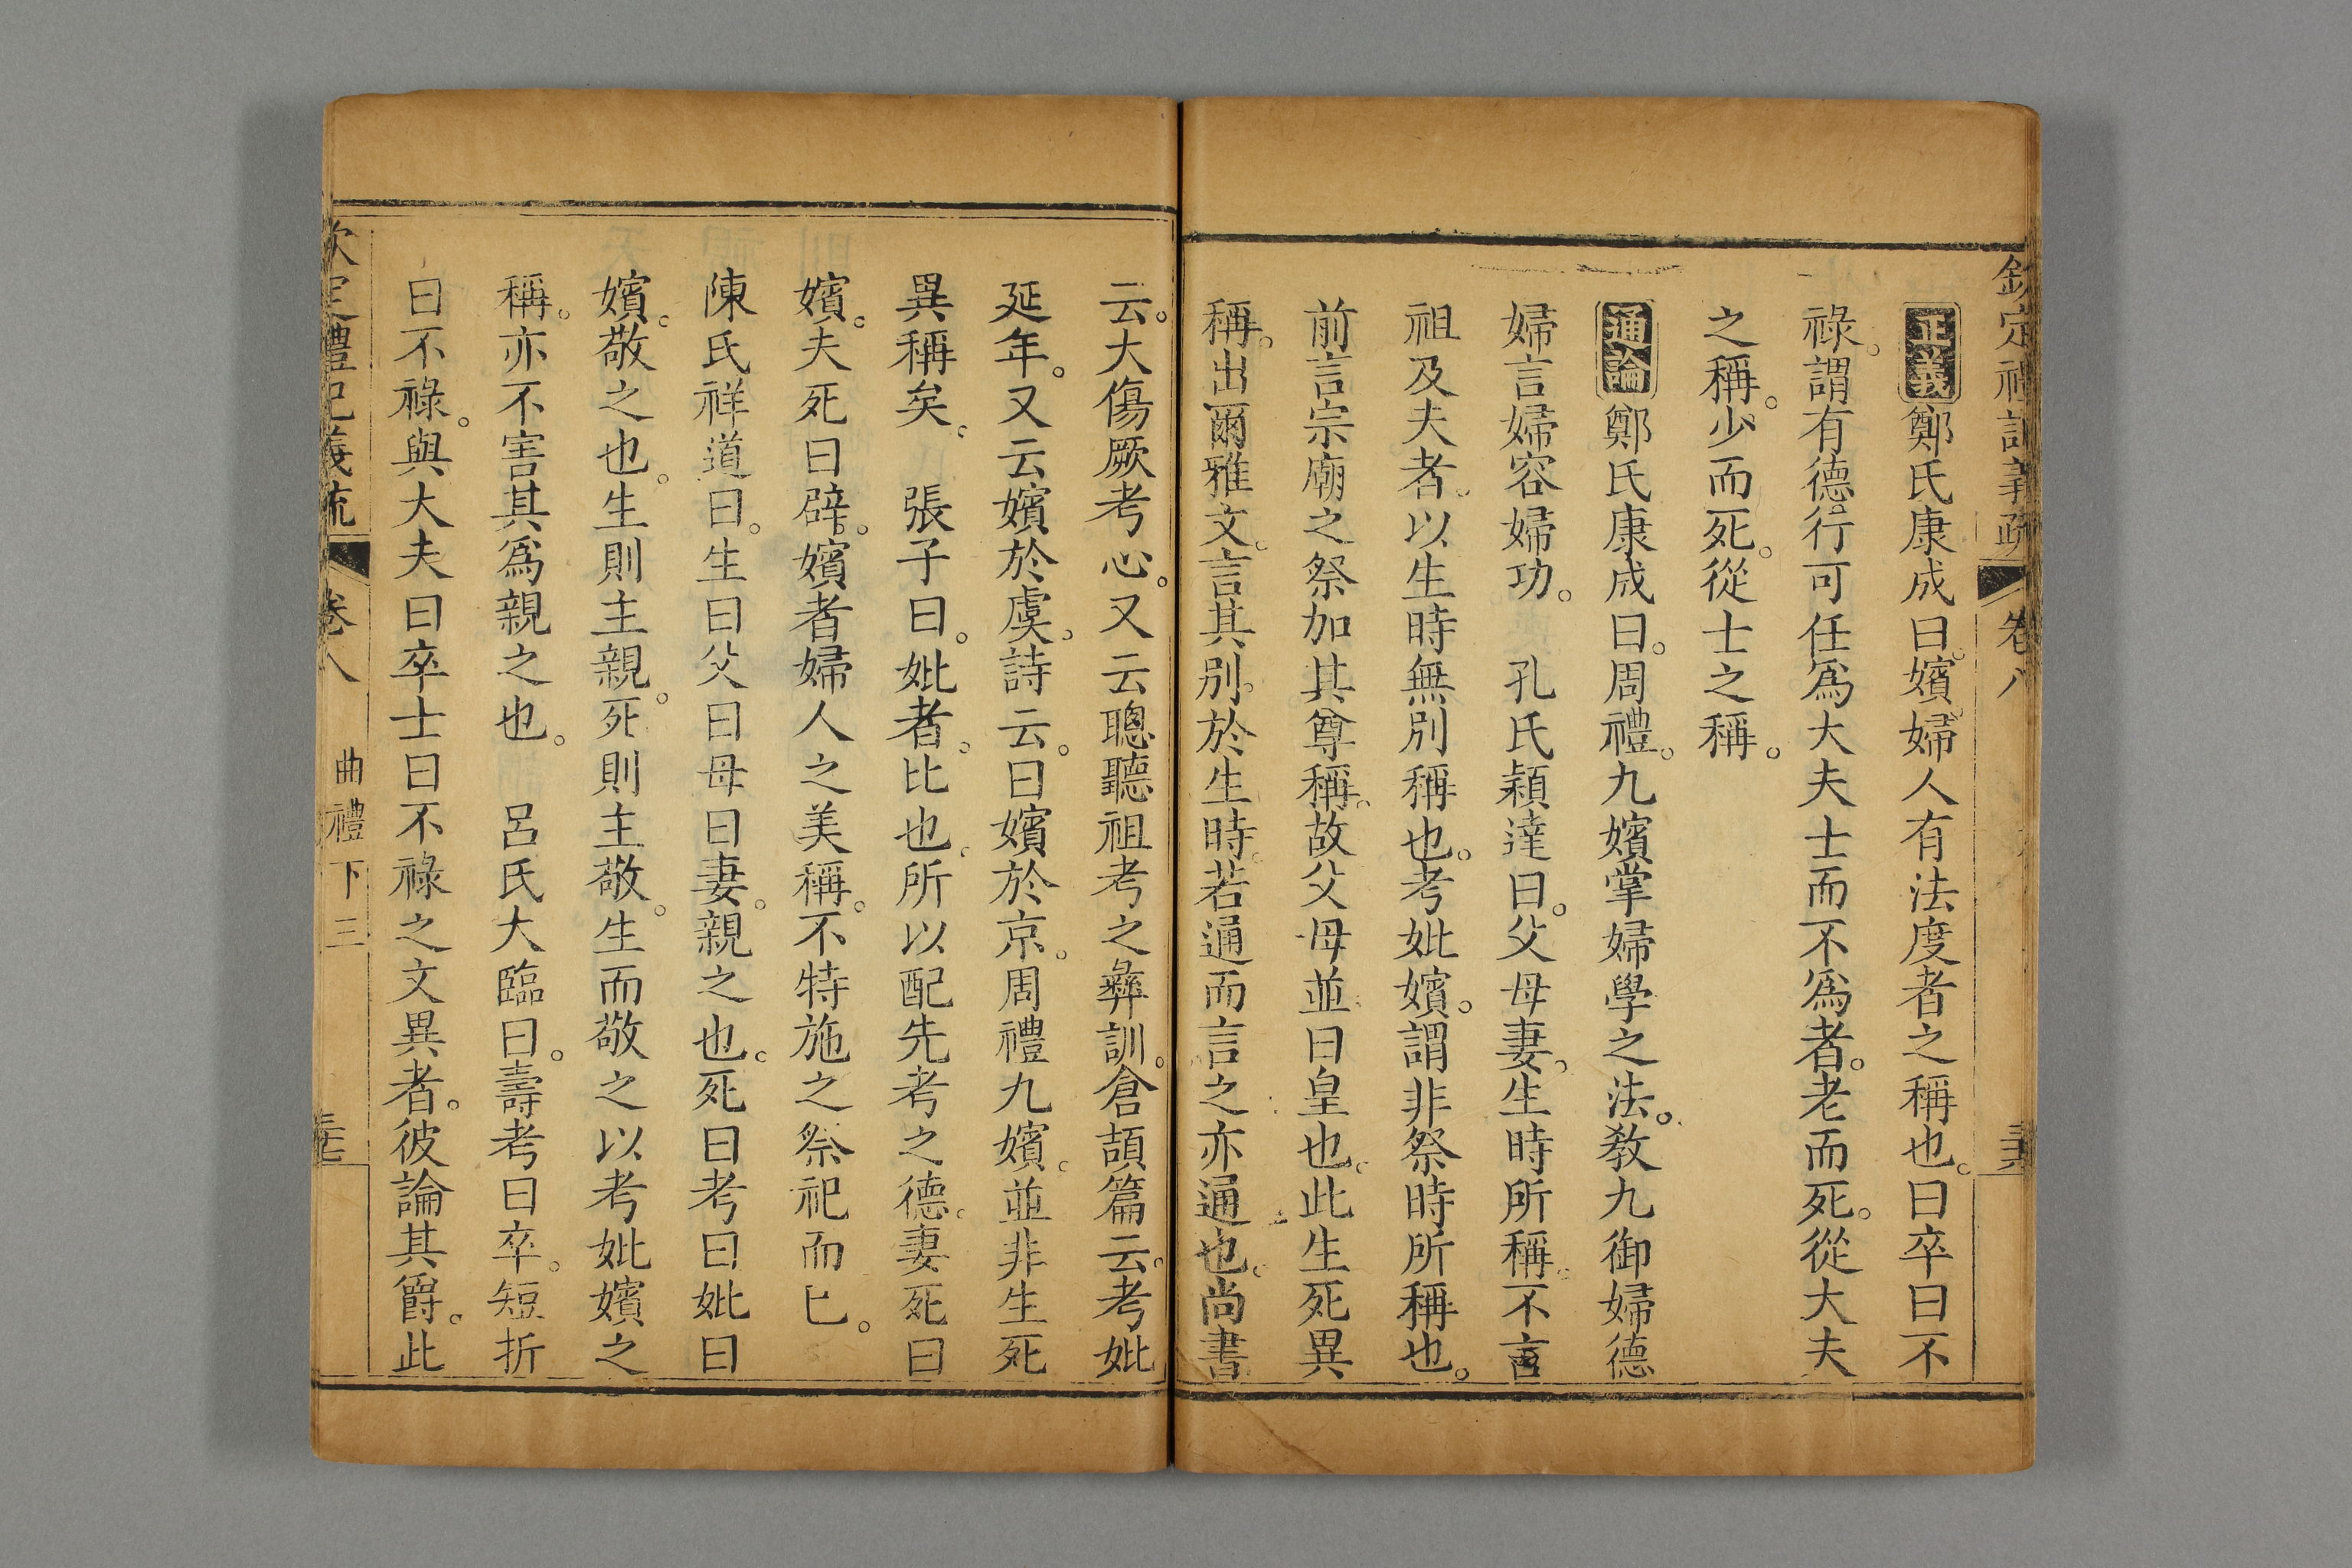 欽定禮記義疏 卷八
正義鄭氏康成曰。嬪。婦人有法度者之稱也。曰卒曰不
祿。謂有德行可任爲大夫士而不爲者。老而死。從大夫
之稱。少而死。從士之稱。
通論鄭氏康成曰。周禮。九嬪掌婦學之法。敎九御婦德
婦言婦容婦功。 孔氏穎達曰。父母妻。生時所稱。不言
祖及夫者。以生時無別稱也。考妣嬪。謂非祭時所稱也。
前言宗廟之祭加其尊稱。故父母並曰皇也。此生死異
稱。出爾雅文。言其别。於生時。若通而言之亦通也。尚書
云。大傷厥考心。又云聰聽祖考之彝訓。倉頡篇云。考妣
延年。又云嬪於虞。詩云。曰嬪於京。周禮九嬪。並非生死
異稱矣。 張子曰。妣者。比也。所以配先考之德。妻死曰
嬪。夫死曰辟。嬪者婦人之美稱。不特施之祭祀而已。
陳氏祥道曰。生曰父曰母曰妻。親之也。死曰考曰妣曰
嬪。敬之也。生則主親。死則主敬。生而敬之以考妣嬪之
稱。亦不害其爲親之也。 呂氏大臨曰。壽考曰卒。短折
曰不祿。與大夫曰卒士曰不祿之文異者。彼論其爵。此
欽定禮記義疏 卷八 曲禮下三